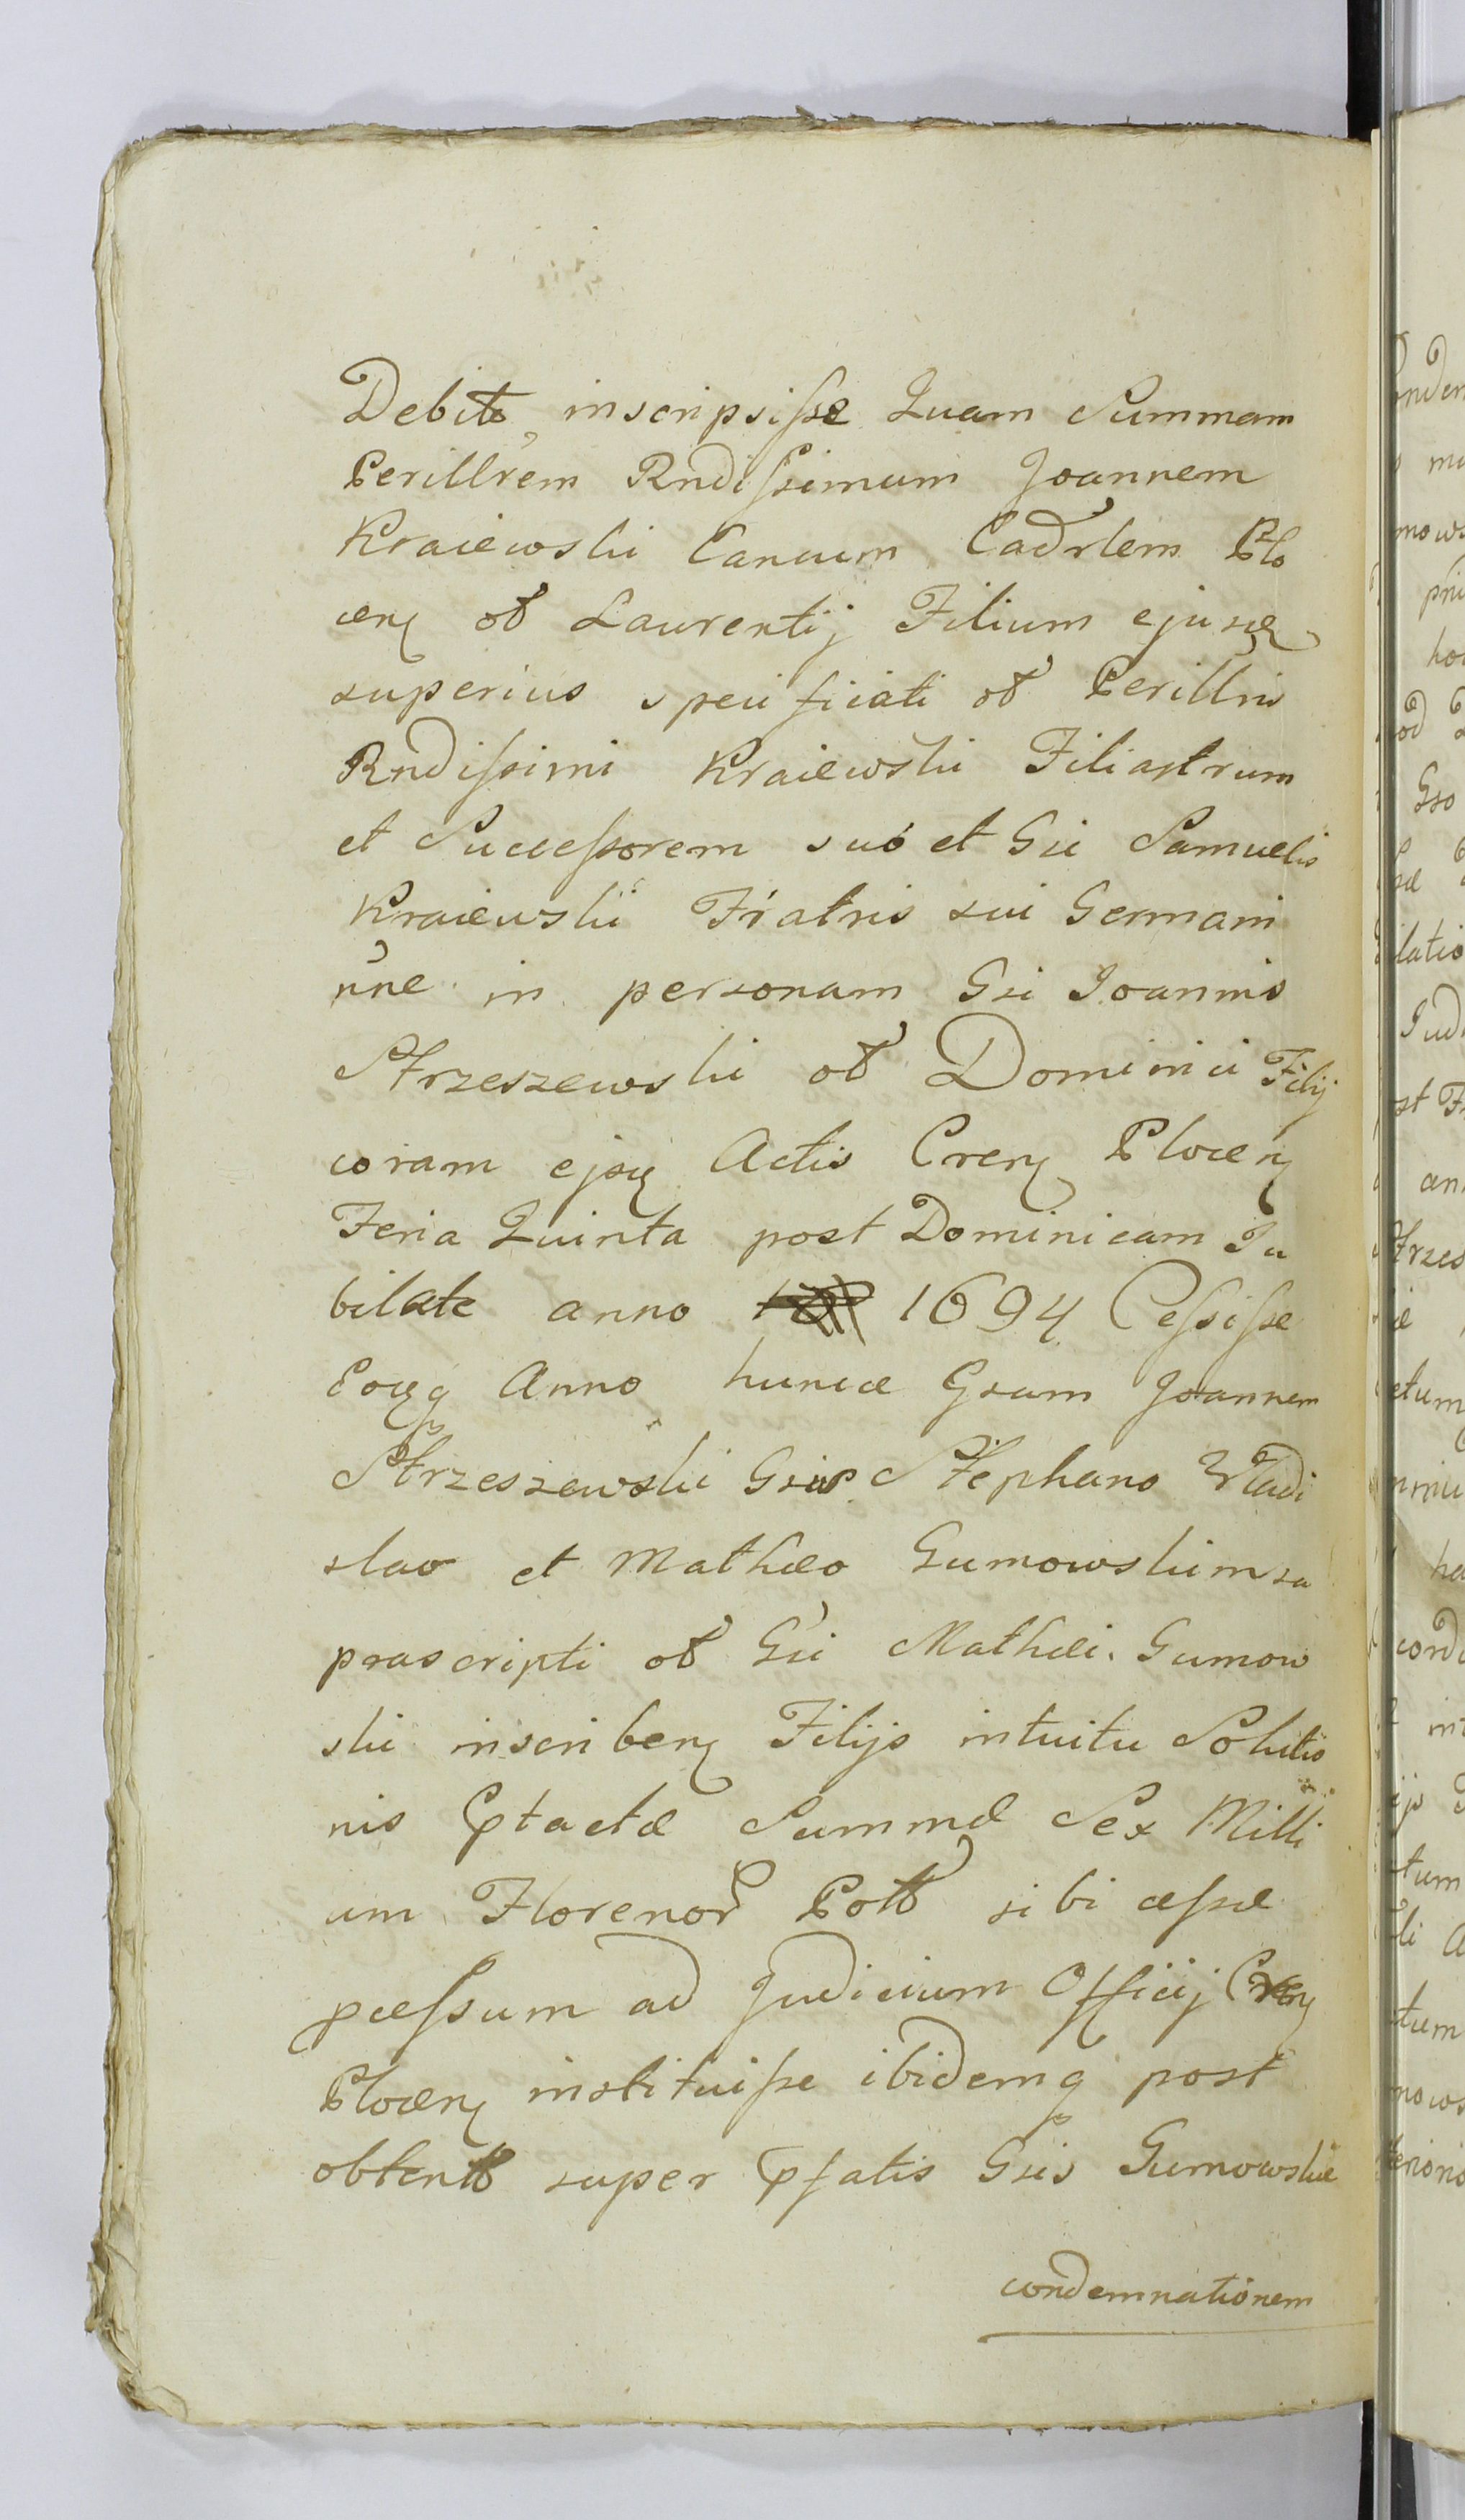 Debito inscripsisse Quam Summam
Perillrem Rndissimum Joannem
Kraiewski Canum Cadrlem Plo
cen ol Laurentij Filium ejusd
superius specificati ol Perillris
Rndissimi Kraiewski Filiastrum
et Successorem suo et Gsi Samuelis
Kraiewski Fratris sui Germani
nne in personam Gsi Joannis
Strzeszewski ol Dominici Filij
coram ejsd Actis Cren Plocen
Feria Quinta post Dominicam Ju
bilate anno 1694 Cessisse
Eodq Anno hunce Gsum Joannem
Strzeszewski Gsis Stephano Vladi
slao et Mathæo Gumowskim su
prascripti ol Gsi Mathæi. Gumow
ski inscriben Filijs intuitu Solutio
nis ptactæ Summæ Sex Milli
um Florenor Poll sibi cessæ
pcessum ad Judicium Officij Cren
Plocen instituisse ibidemq post
obtent super pfatis Gsis Gumowskie
condemnationem